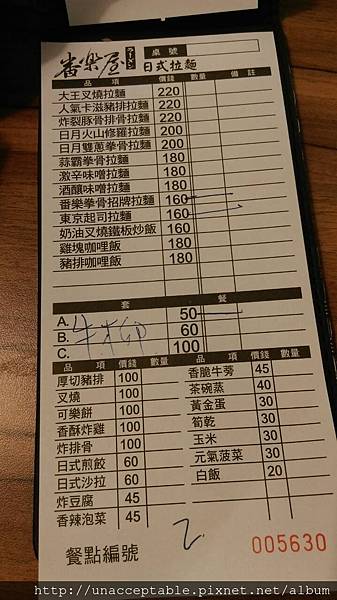 番樂屋 ラーメン 日式拉麵 桌號
品項 價錢 數量 備註
大王叉燒拉麵 220
人氣卡滋豬排拉麵 220
炸裂豚骨排骨拉麵 220
日月火山修羅拉麵 200
日月雙蔥拳骨拉麵 200
蒜霸拳骨拉麵 180
激辛味噌拉麵 180
酒釀味噌拉麵 180
番樂拳骨招牌拉麵 160 一
東京起司拉麵 160 一
奶油叉燒鐵板炒飯 160
雞塊咖哩飯 180
豬排咖哩飯 180
套餐
A. 50 一
B. 60
C. 100
牛柳
品項 價錢 數量 品項 價錢 數量
厚切豬排 100 香脆牛蒡 45
叉燒 100 茶碗蒸 40
可樂餅 100 黃金蛋 30
香酥炸雞 100 筍乾 30
炸排骨 100 玉米 30
日式煎餃 60 元氣菠菜 30
日式沙拉 60 白飯 20
炸豆腐 45
香辣泡菜 45
餐點編號 2 005630
http://unacceptable.pixnet.net/album